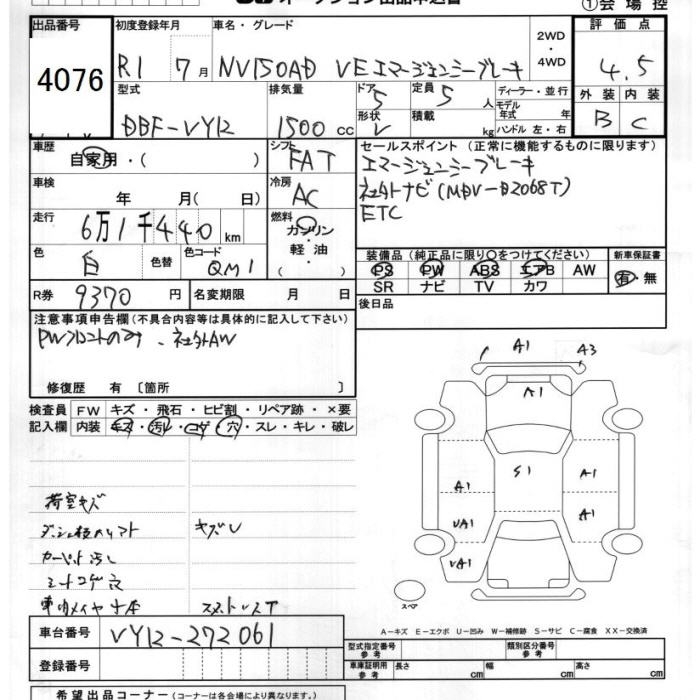 ①会場控
出品番号 初度登録年月 車名・グレード 2WD 評価点
4076 R1 7月 NV150AD VEエマージェンシーブレーキ ・4WD 4.5
型式 排気量 ドア 定員 ディーラー・並行 外装 内装
DBF-VY12 1500cc 5 5人 モデル年式 年 B C
形状 V 積載 kg ハンドル 左・右
車歴 シフト セールスポイント (正常に機能するものに限ります)
自家用・( ) FAT エマージェンシーブレーキ
車検 冷房 社外ナビ(MDV-D206BT)
年 月( 日) AC ETC
走行 燃料
6万1千440km ガソリン・軽油
色 色替 色コード ( ) 装備品 (純正品に限り○をつけてください) 新車保証書
白 QM1 PS PW ABS エアB AW 有・無
R券 9370円 名変期限 月 日 SR ナビ TV カワ
後日品
注意事項申告欄(不具合内容等は具体的に記入して下さい)
PWフロントのみ、社外AW
修復歴 有 〔箇所
検査員 FW キズ・飛石・ヒビ割・リペア跡・×要
記入欄 内装 キズ・汚レ・コゲ・穴・スレ・キレ・破レ
A1 A3
A1
S1
A1 A1
UA1 A1
UA1
荷室キズ
キズU
カーペット汚レ
シートコゲ穴
スペア
A-キズ E-エクボ U-凹み W-補修跡 S-サビ C-腐食 XX-交換済
車台番号 VY12-272061
型式指定番号 参考 類別区分番号 参考
登録番号 車庫証明用 参考 長さ cm 幅 cm 高さ cm
希望出品コーナー(コーナーは各会場により異なります。)